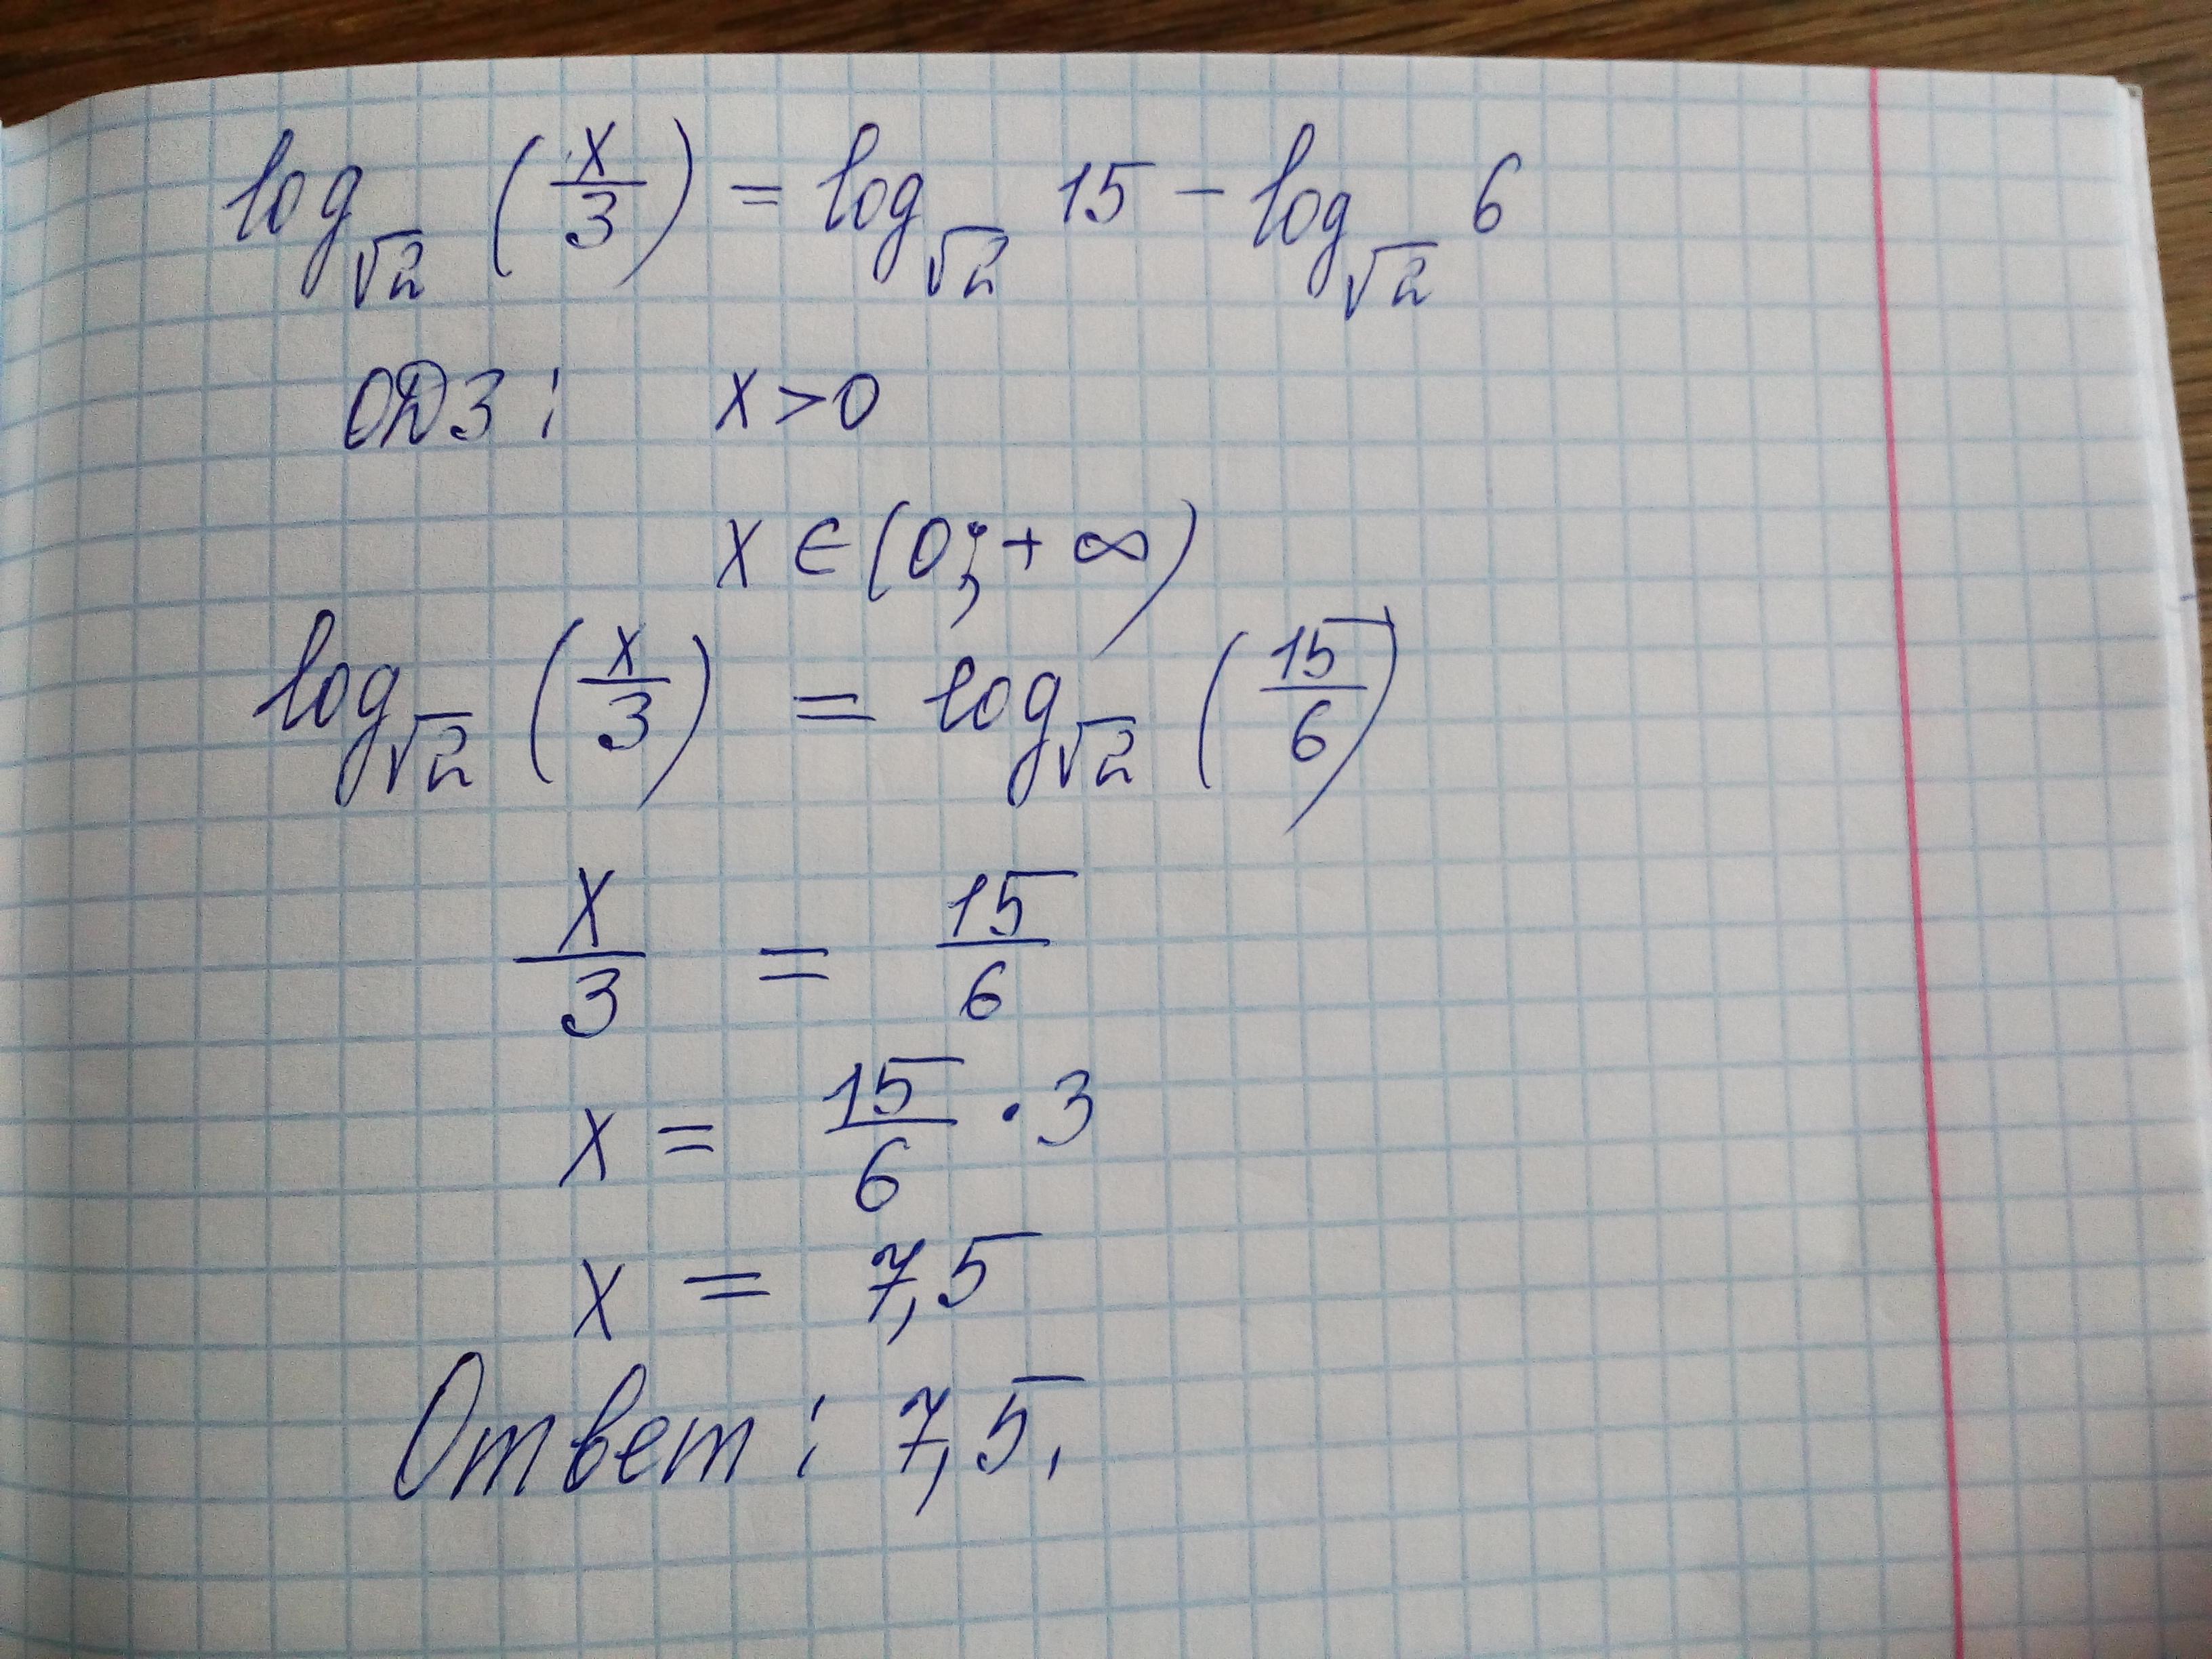 log√2 (x/3) = log√2 15 − log√2 6
ОДЗ: x>0
x ∈ (0; + ∞)
log√2 (x/3) = log√2 (15/6)
x/3 = 15/6
x = 15/6 · 3
x = 7,5
Ответ: 7,5.